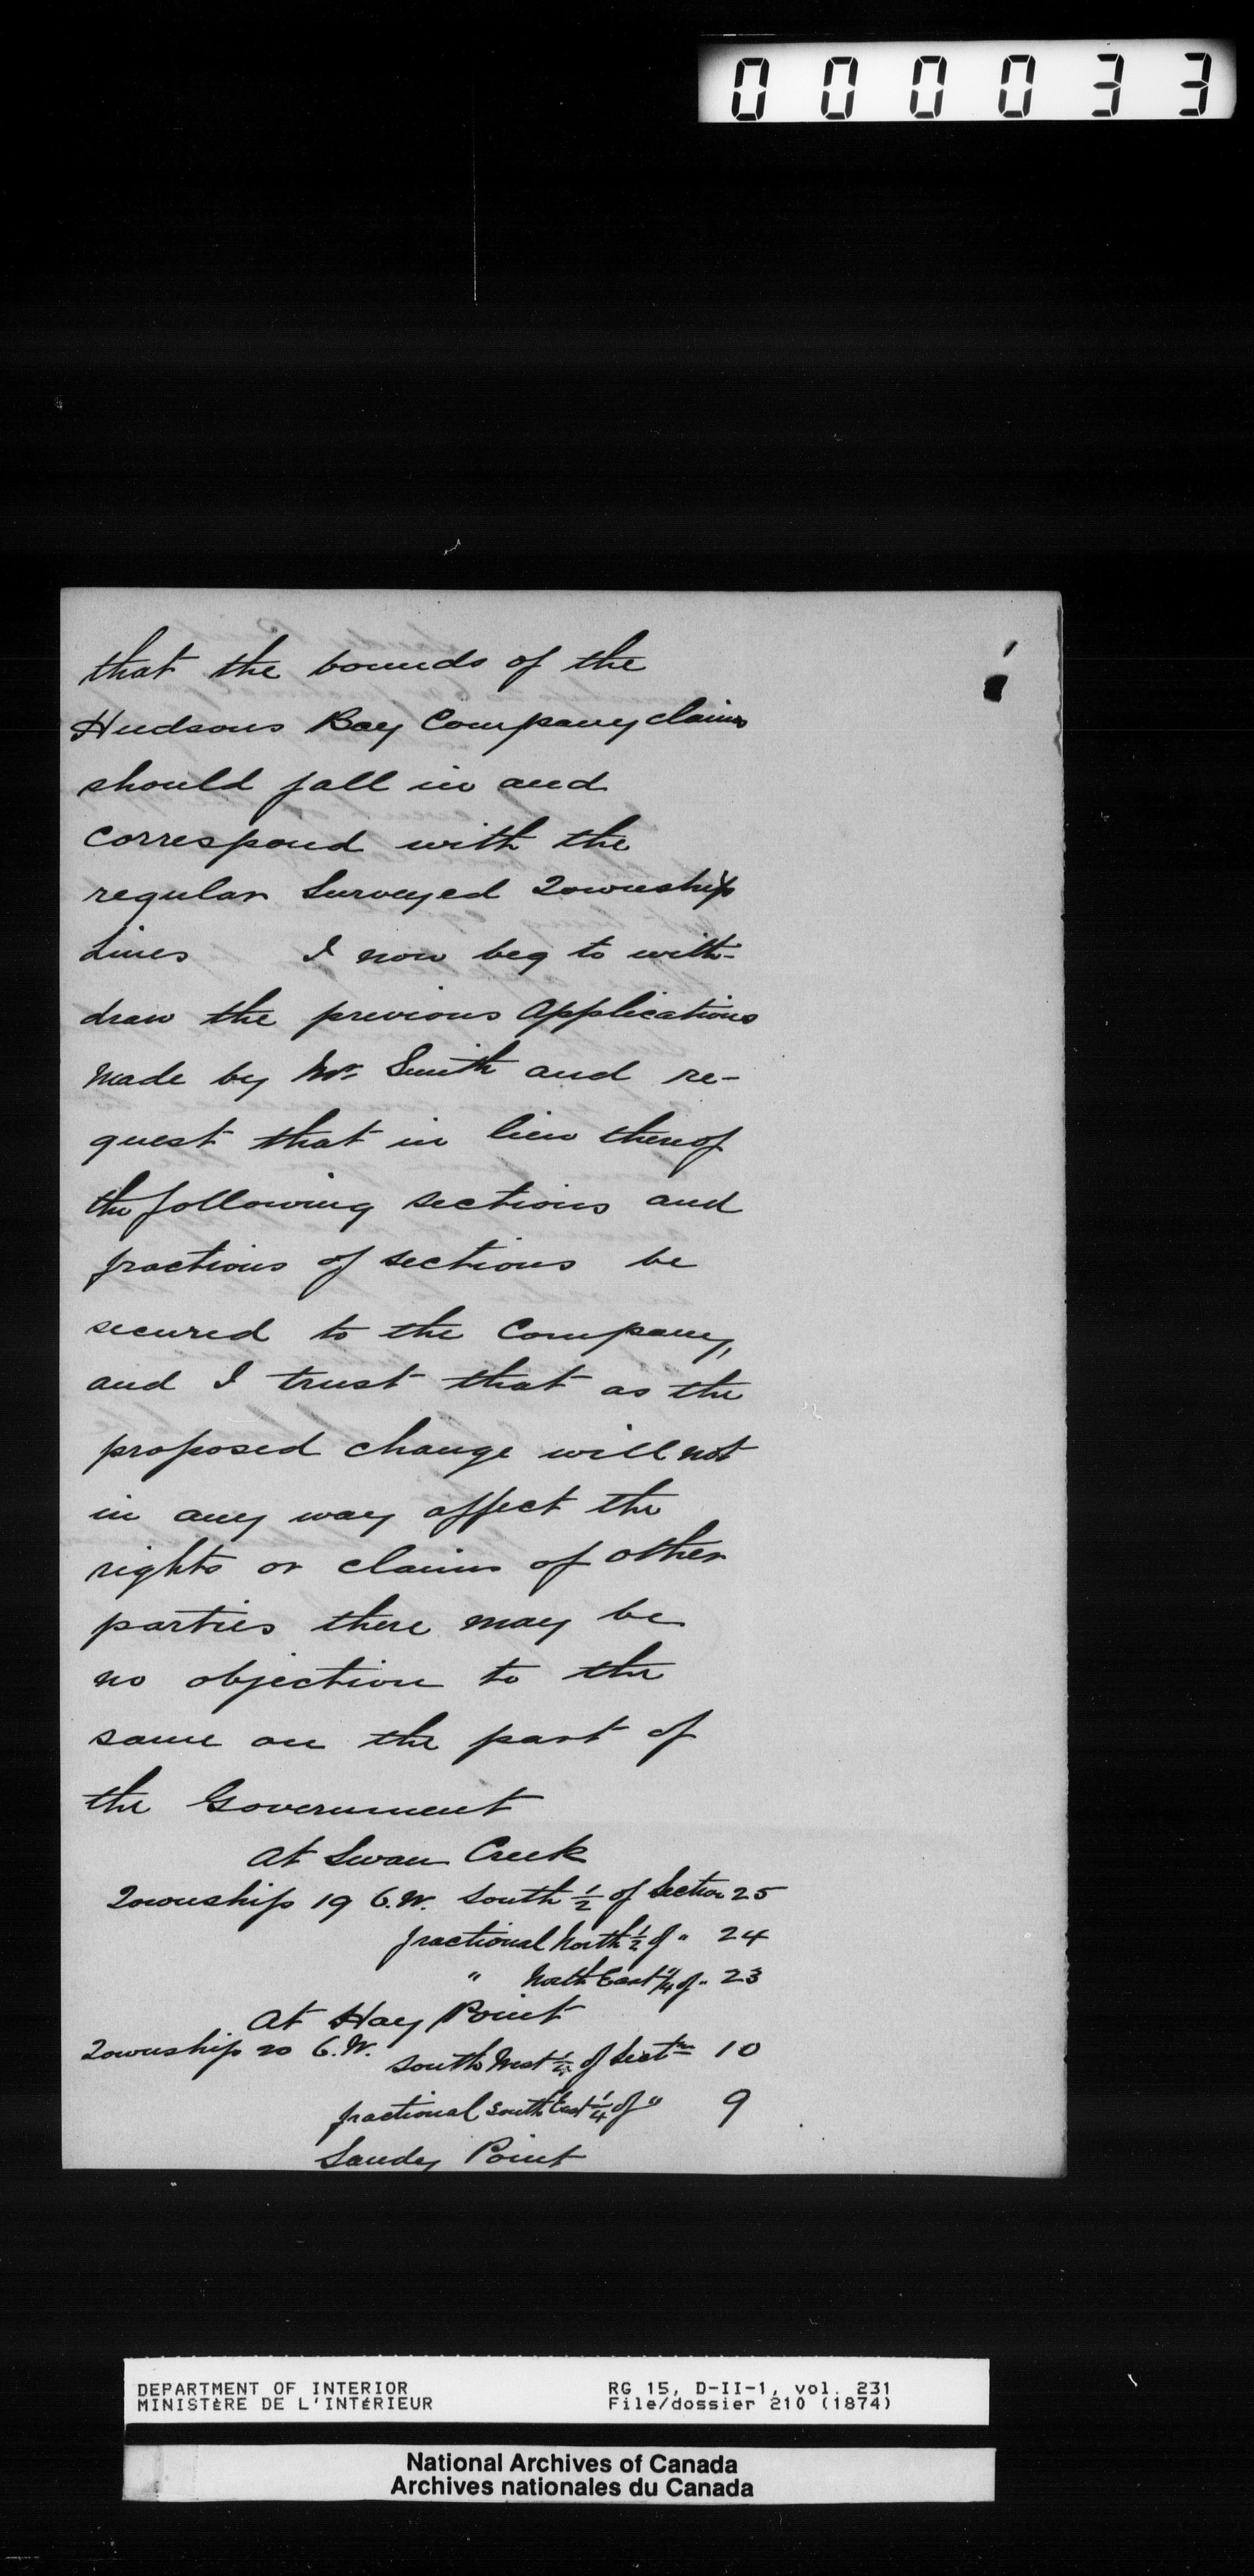 000033
that the bounds of the
Hudsons Bay Company claims
should fall in and
correspond with the
regular Surveyed Township
Lines I now beg to with-
draw the previous Applications
made by Mr Smith and re-
quest that in lieu thereof
the following sections and
fractions of sections be
secured to the Company,
and I trust that as the
proposed change will not
in any way affect the
rights or claims of other
parties there may be
no objection to the
same on the part of
the Government
At Swan Creek
Township 19 6.W. South ½ of Section 25
fractional North ½ of " 24
" North East ¼ of " 23
At Hay Point
Township 20 6.W.
South West of Sectn 10
fractional South East ¼ of " 9
Sandy Point
DEPARTMENT OF INTERIOR RG 15, D-II-1, vol. 231
MINISTÈRE DE L'INTÉRIEUR File/dossier 210 (1874)
National Archives of Canada
Archives nationales du Canada